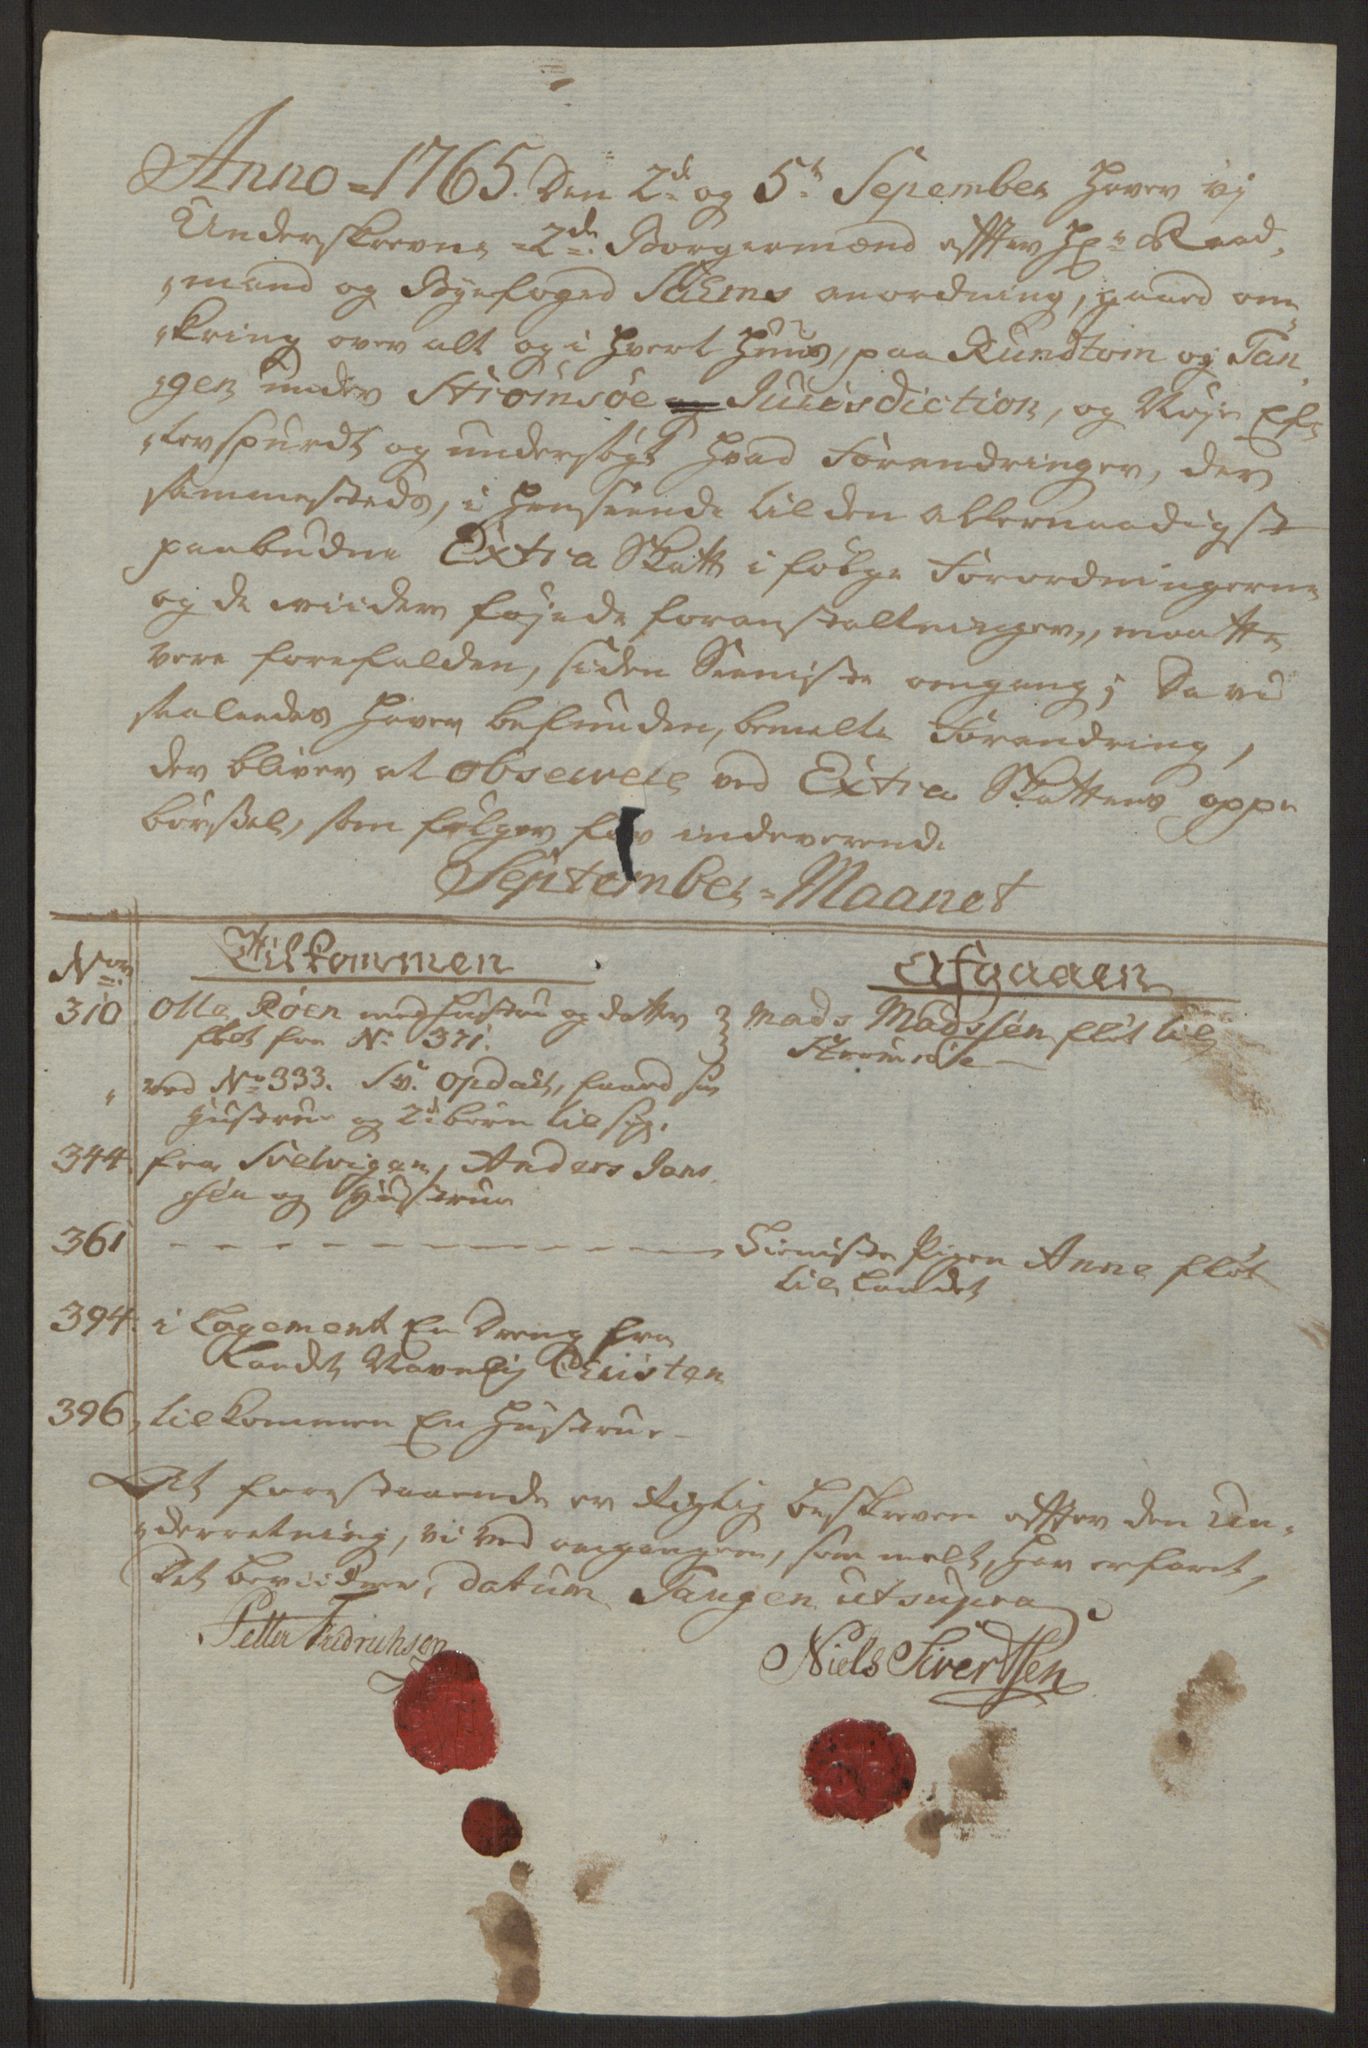 Anno = 1765. Den 2de og 5te Sepember Haver vj
Underskrevne 2de Borgermænd efter Hr Raad,
mand og Byefoged anordning, gaaed om,
kring over alt og i hvert Huus, paa Rundtom og Tan
gen under Strømsøe Jurisdiction, og Nøje Ef,
terspurdt og undersøgt hvad Forandringer, der
sammesteds, i Henseende til den allernaadigst
paabudne Extra Skatt i følge Forordningerne
og de viidere føjede foranstaltninger, maatte
vere forefalden, siden Seeniste omgang; Da vi
saaledes haver befunden, bemelte Forandring,
der bliver at observere ved Extra Skattens oppe
børsel, som følger for indeverende
September = Maanet
Nor Tilkommen Afgaaen
310 Olle Røen med Hustru og datter Mads Madssen fløt til
fløt fra No 371. Strømsøe
" ved No 333. Sr. Opdahl, faaed sin
Hustrue og 2de børn til sig.
344. fra Svelvigen, Anders Jans
sen og Hustrue
361 Tieniste Pigen Anne fløt
til Landet
394. i Logement En Dreng fra
Landet Navnlig Christen
396, tilkommen En Hustrue
At forestaaende er Rigtig beskreven efter den Un,
derretning, vi ved omgangen, som melt, har erfaret,
Det bevidner, datum Tangen ut supra
Petter Fredrichsen Niels Sivertsen